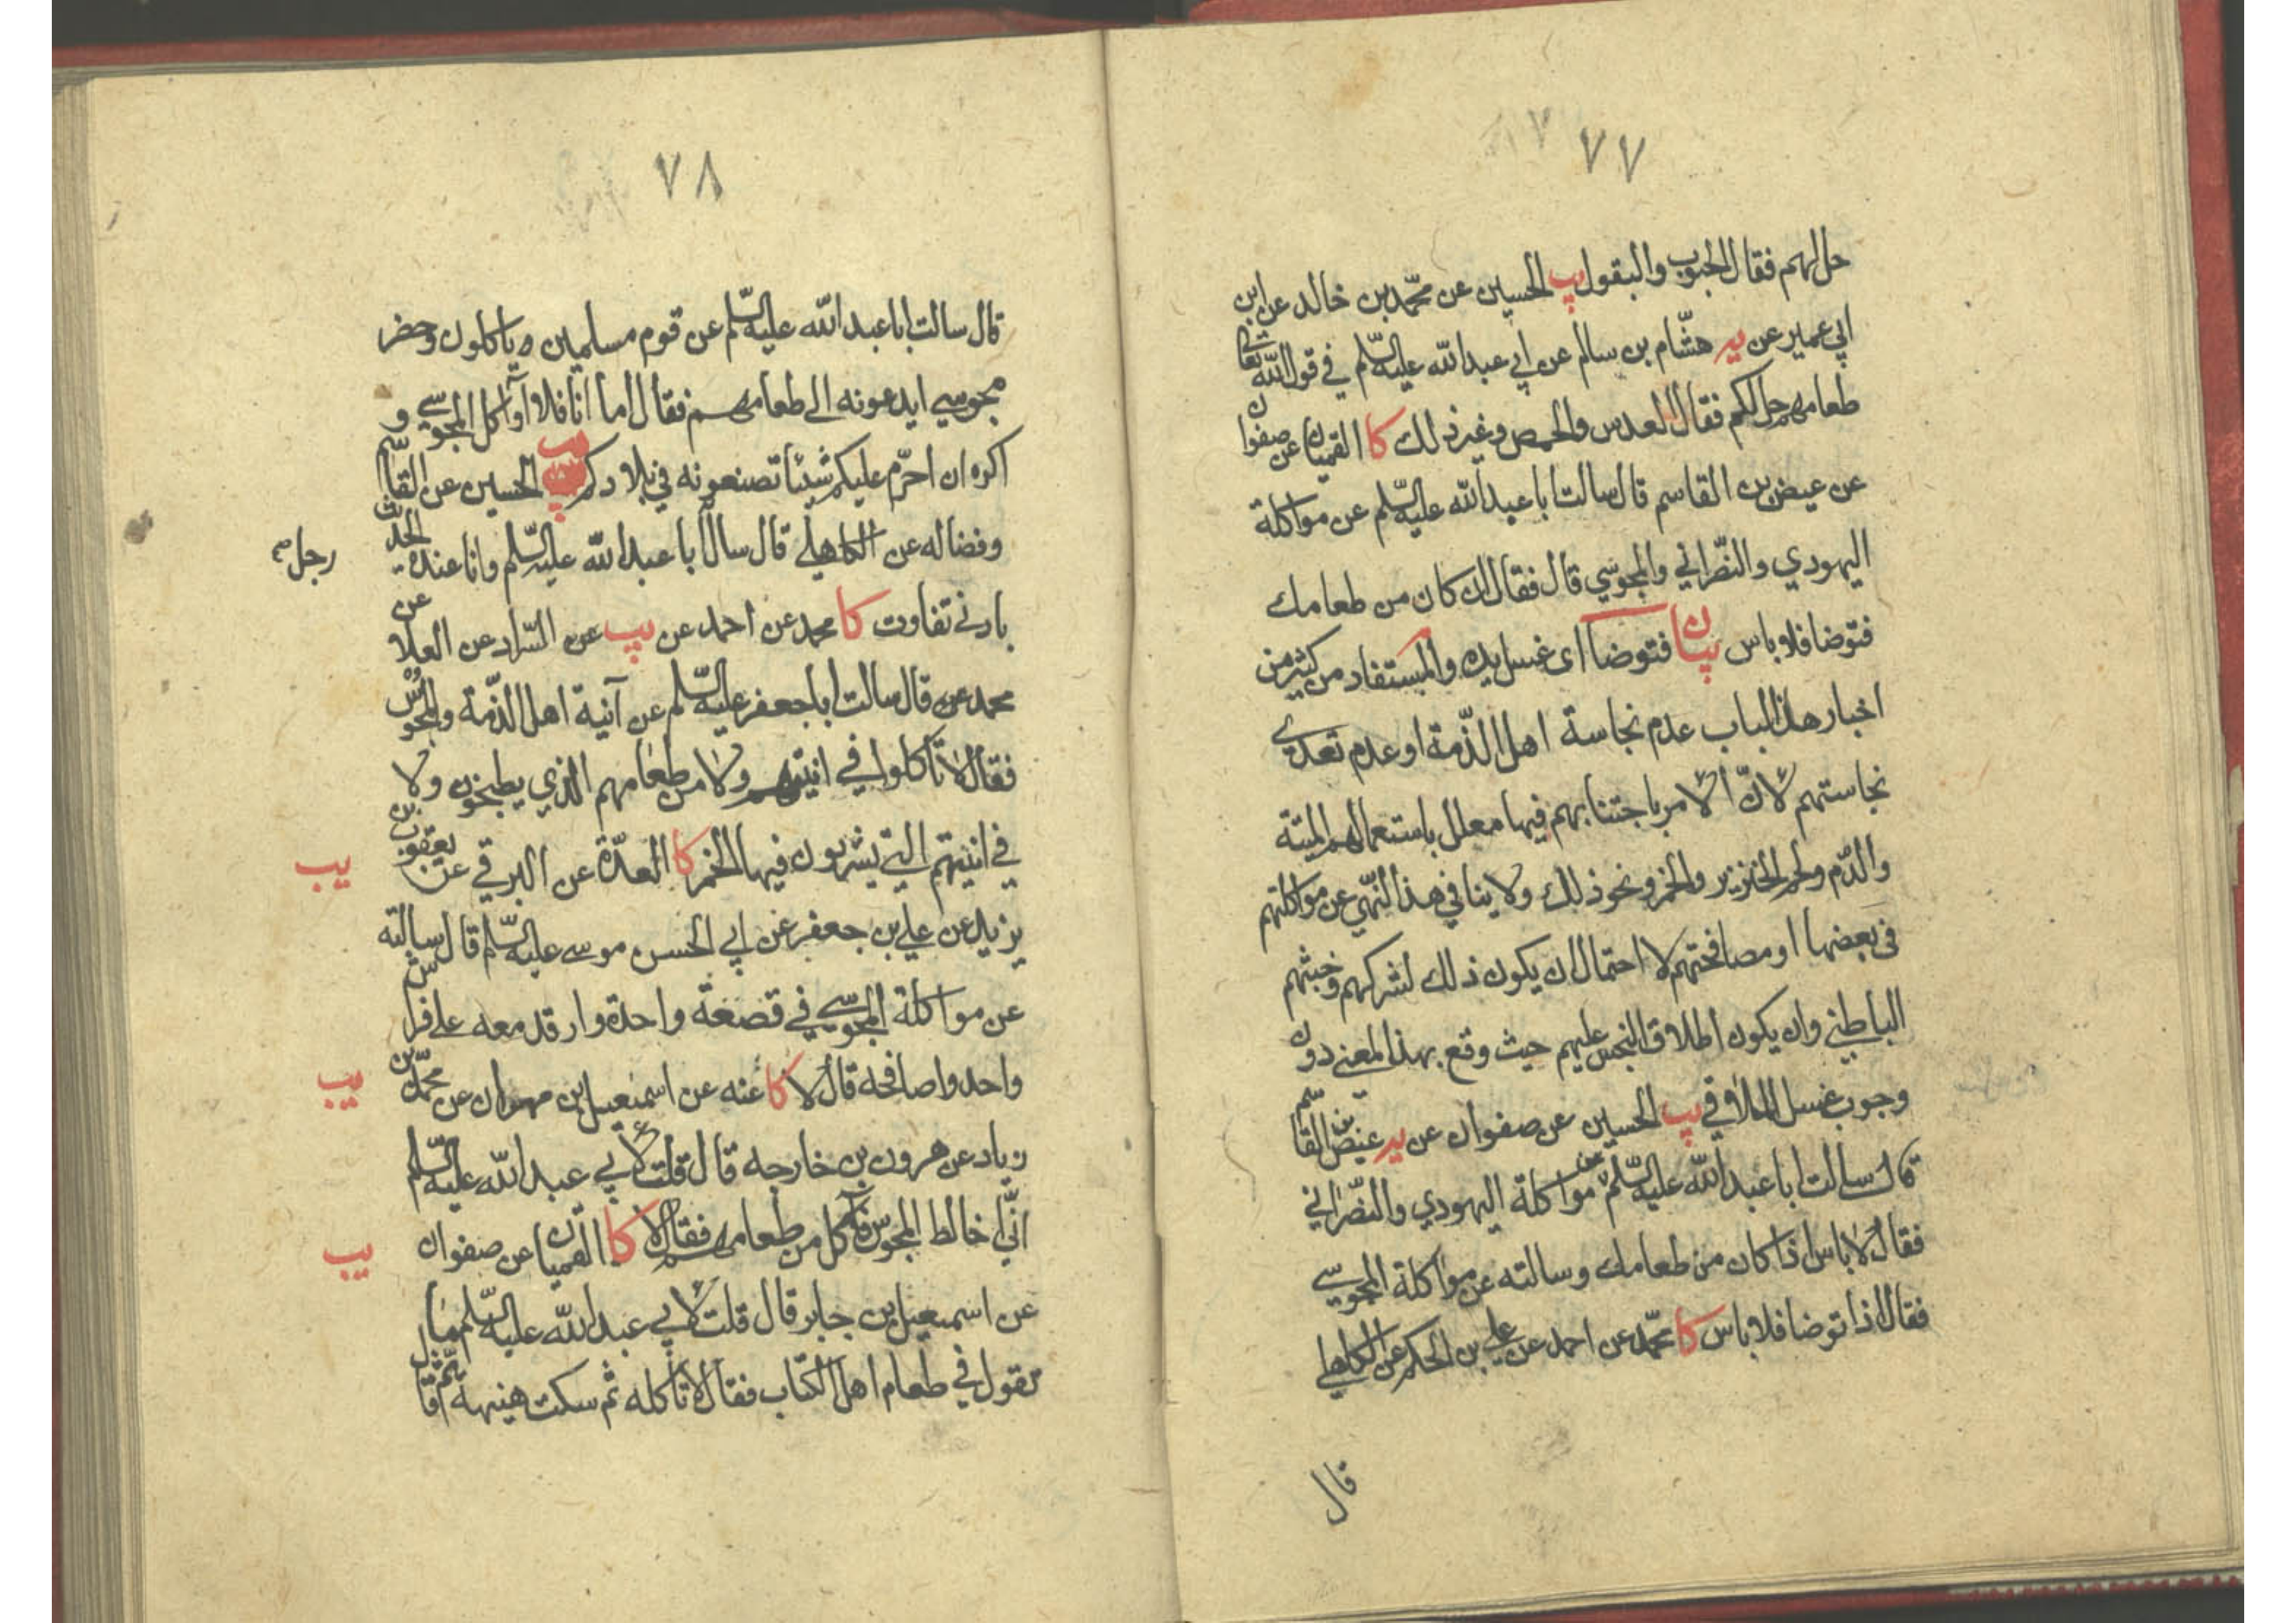 ٧٧
حل لهم فقال الحبوب والبقول يب الحسين عن محمّد بن خالد عن ابن
ابي عمير عن ير هشّام بن سالم عن ابي عبد الله عليه السّلم في قول الله تعالى
طعامهم حل لكم فقال العدس والحمص وغير ذلك كا القميان عن صفوان
عن عيض بن القاسم قال سالت ابا عبد الله عليه السّلم عن مواكلة
اليهودي والنصّراني والمجوسي قال فقال ان كان من طعامك
فتوضا فلا باس بيان فتوضا اى غسل يده والمستفاد من كثير من
اخبار هذا الباب عدم نجاسة اهل الذّمة او عدم تعدى
نجاستهم لانّ الامر باجتنابهم فيها معلل باستعمالهم الميتة
والدّم ولحم الخنزير والخمر ونحو ذلك ولا ينافي هذا النّهي عن مواكلتهم
فى بعضها او مصافحتهم لا احتمال ان يكون ذلك لشركهم وخبثهم
الباطني وان يكون اطلاق النجس عليهم حيث وقع بهذا المعنى دون
وجوب غسل الملاقي يب الحسين عن صفوان عن ير عيض بن القاسم
قال سالت ابا عبد الله عليه السّلم عن مواكلة اليهودي والنصّراني
فقال لا باس اذا كان من طعامك وسالته عن مواكلة المجوسي
فقال اذا توضا فلا باس كا محمّد عن احمد عن علي بن الحكم عن الكاهلي
قال
٧٨
قال سالت ابا عبد الله عليه السّلم عن قوم مسلمين ياكلون وحضر
مجوسي ايدعونه الى طعامهم فقال اما انا فلا اوآكل المجوسي و
اكره ان احرّم عليكم شيئا تصنعونه في بلادكم يب الحسين عن القاسم
وفضاله عن الكاهلي قال سال ابا عبد الله عليه السّلم وانا عنده الحديث
رجل صح
بادنى تفاوت كا محمد عن احمد عن يب عن السّراد عن العلا عن
محمد عن قال سالت ابا جعفر عليه السّلم عن آنية اهل الذّمة والمجوس
فقال لا تاكلوا في انيتهم ولا من طعامهم الذي يطبخون ولا
في انيتهم التي يشربون فيها الخمر كا العدّة عن البرقي عن يعقوب بن
يب
يزيد عن علي بن جعفر عن ابي الحسن موسى عليه السّلم قال سالته
عن مواكلة المجوسي في قصعة واحدة وارقد معه على فراش
واحد واصافحه قال لا كا عنه عن اسمعيل بن مهران عن محمّد بن
يب
زياد عن هرون بن خارجه قال قلت لابي عبد الله عليه السّلم
انّي اخالط المجوس فآكل من طعامهم فقال لا كا القميان عن صفوان
يب
عن اسمعيل بن جابر قال قلت لابي عبد الله عليه السّلم ما
تقول في طعام اهل الكتاب فقال لا تاكله ثم سكت هنيهة ثمّ قال